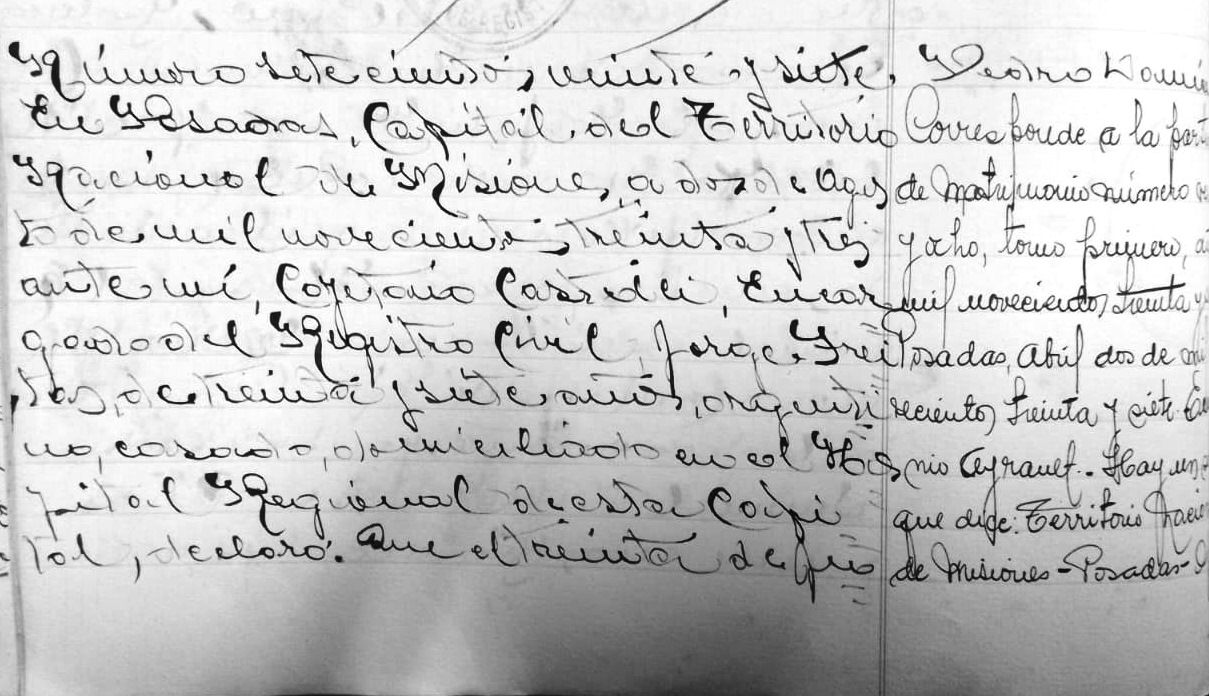 Número setecientos veinte y siete.
En Posadas, Capital del Territorio
Nacional de Misiones, a dos de Agos
to de mil novecientos treinta y tres
ante mí, Cayetano Castelli, Encar
gado del Registro Civil, Jorge Frei
tas, de treinta y siete años, argenti
no, casado, domiciliado en el Hos
pital Regional de esta Capi
tal, declaró: Que el treinta de
Pedro
Corresponde a la
de matrimonio número
y ocho, tomo primero,
mil novecientos treinta y
Posadas, Abril dos de
vecientos treinta y siete.
Hay un
que dice: Territorio
de Misiones - Posadas -